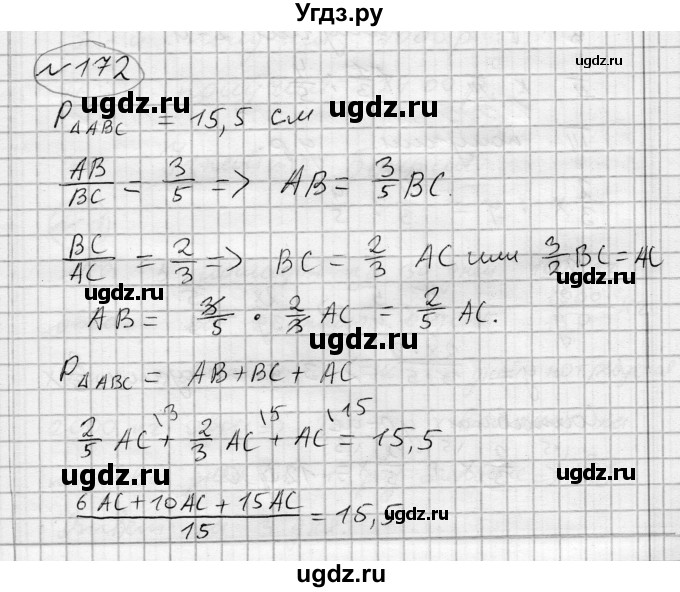 Угдз.ру
№172
ugdz.ru
ugdz.ru
ugdz.ru
P△ABC = 15,5 см
AB/BC = 3/5 => AB = 3/5 BC.
ugdz.ru
BC/AC = 2/3 => BC = 2/3 AC или 3/2 BC = AC
ugdz.ru
AB = 3/5 · 2/3 AC = 2/5 AC.
ugdz.ru
P△ABC = AB + BC + AC
2/5 AC \3 + 2/3 AC \5 + AC \15 = 15,5
ugdz.ru
ugdz.ru
(6AC + 10AC + 15AC)/15 = 15,5
ugdz.ru
ugdz.ru